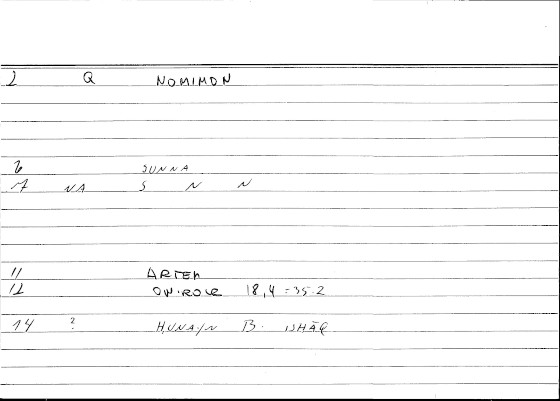 2 Q NOMIMON
6 SUNNA
7 NA S N N
11 ARTEM
12 ON-ROLE 18,4 = 35.2
14 ? HUNAYN B. ISHĀQ